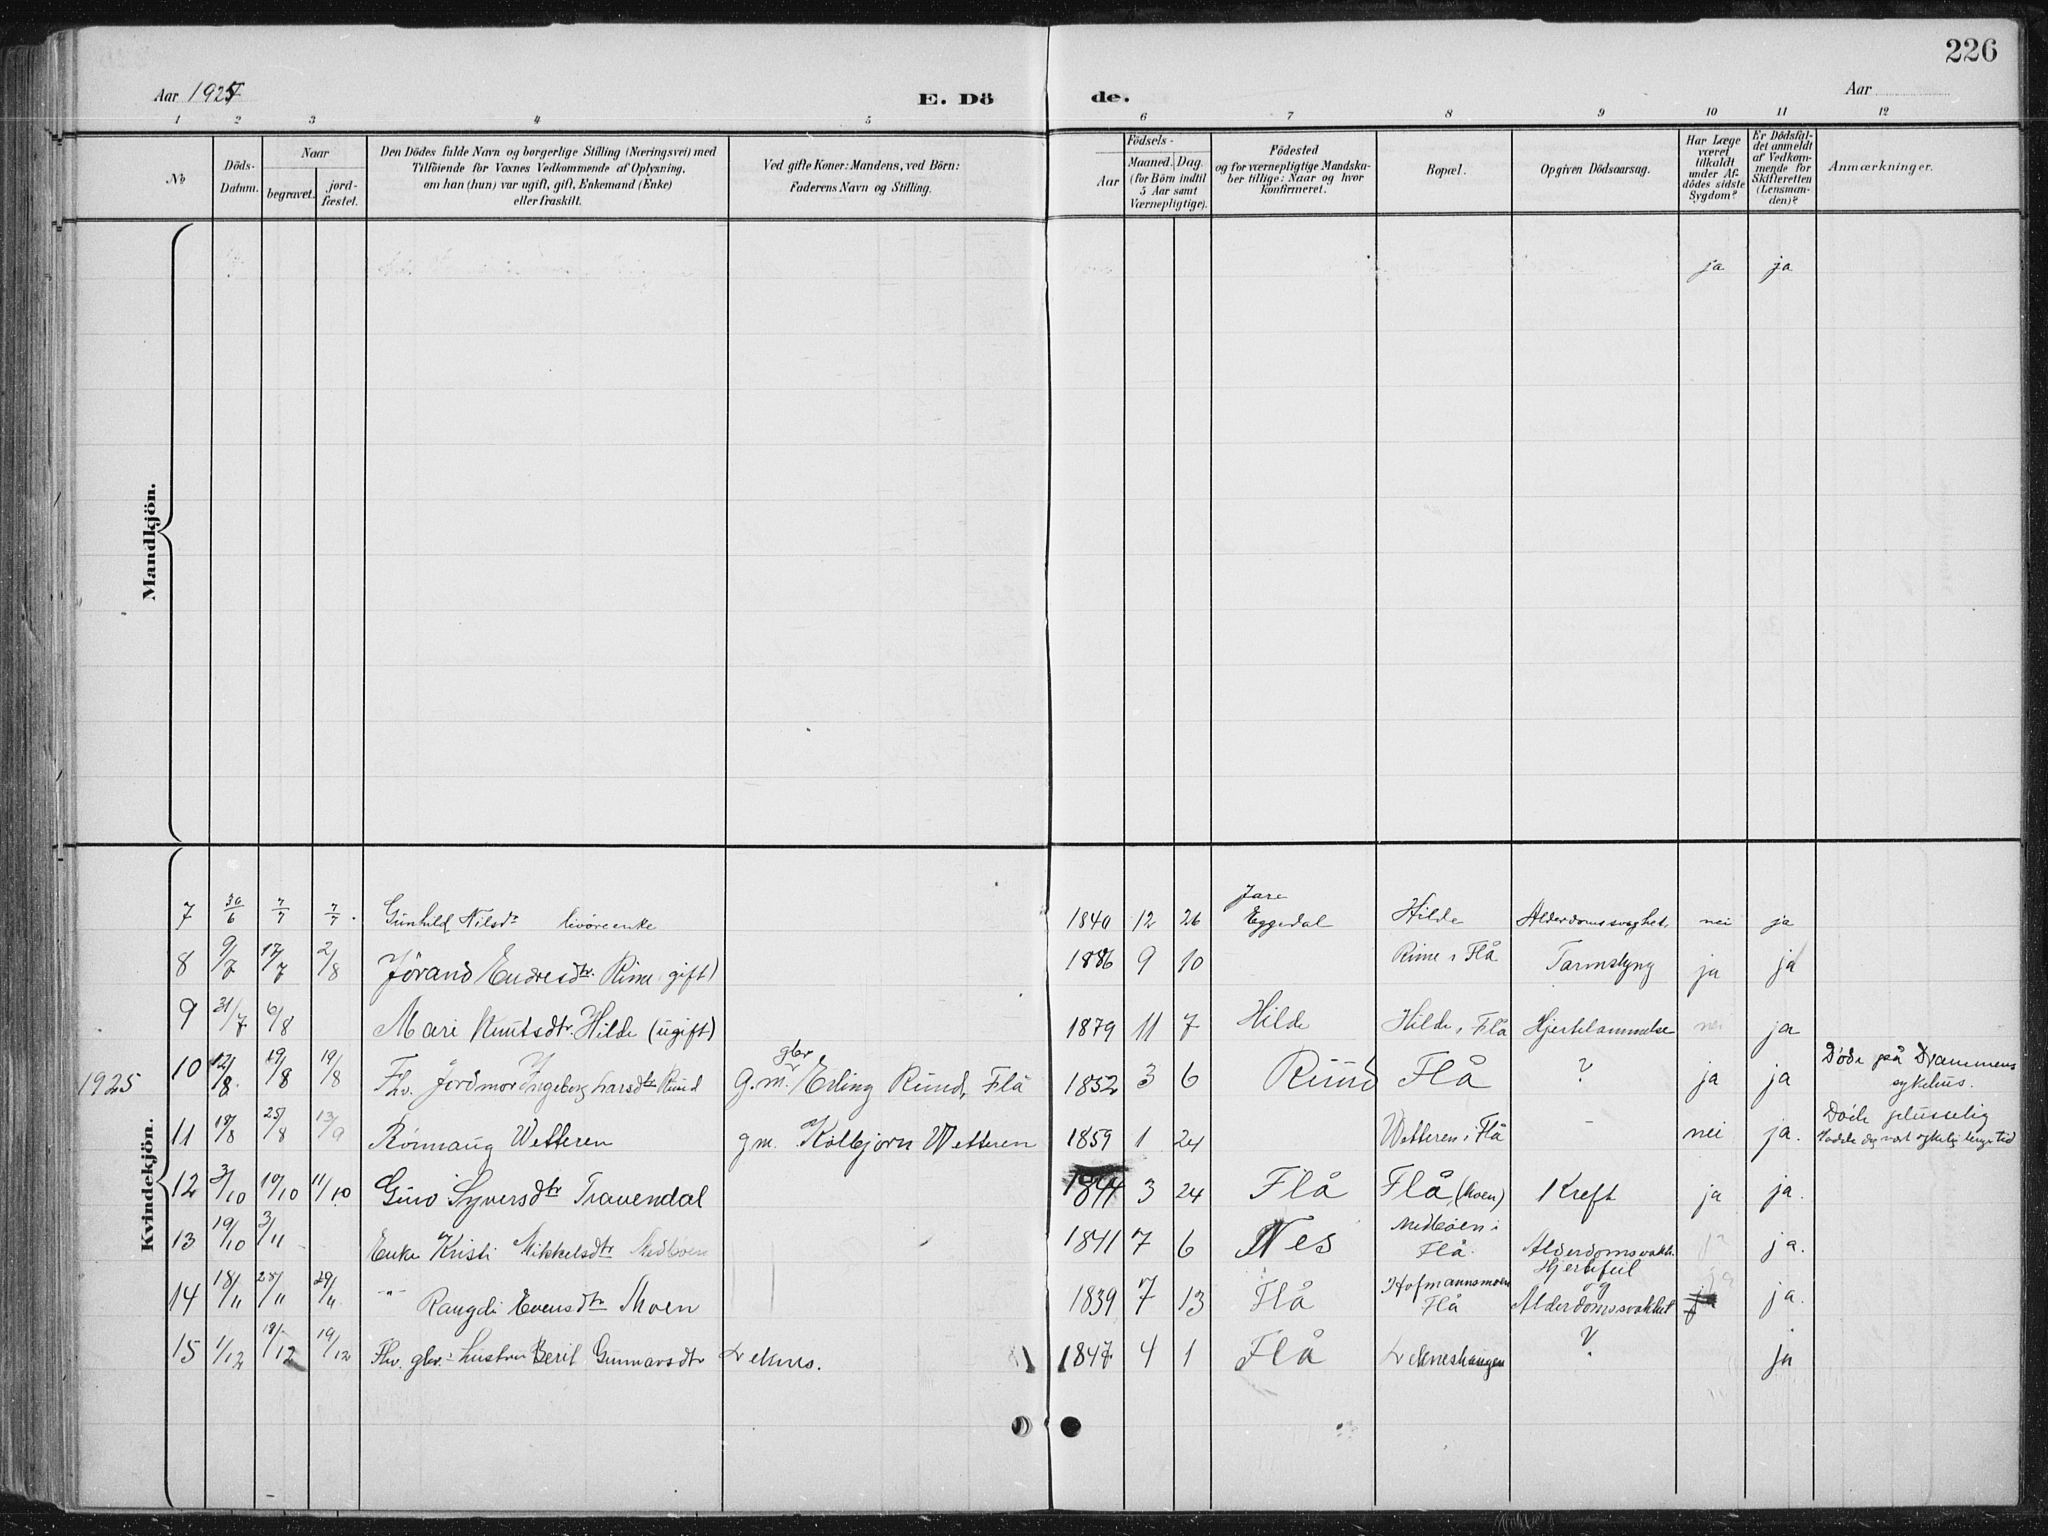 226
Aar 1925
E. Dö de.
Aar
1 2 3 4 5 6 7 8 9 10 11 12
No
Döds-Datum.
Naar
begravet.
jord-fæstet.
Den Dödes fulde Navn og borgerlige Stilling (Næringsvei) med
Tilföiende for Voxnes Vedkommende af Oplysning,
om han (hun) var ugift, gift, Enkemand (Enke)
eller fraskilt.
Ved gifte Koner: Mandens, ved Börn:
Faderens Navn og Stilling.
Födsels-
Aar
Maaned. Dag.
(for Börn indtil
5 Aar samt
Værnepligtige).
Födested
og for værnepligtige Mandska-
ber tillige: Naar og hvor
konfirmeret.
Bopæl.
Opgiven Dödsaarsag.
Har Læge
været
tilkaldt
under Af-
dödes sidste
Sygdom?
Er Dödsfal-
det anmeldt
af Vedkom-
mende for
Skifteretten
(Lensman-
den)?
Anmærkninger.
Mandkjön.
ja ja
Kvindekjön.
7 30/6 7/7 7/7. Gunhild Nilsdr 1840 12 26 Jare Eggedal Hilde Alderdomssvaghet. nei ja
8 9/7 17/7 2/8 Jörand Endresdtr. Rime (gift) 1886 9 10 Rime i Flå Tarmslyng ja ja
9 31/7 6/8 Mari Knutsdtr. Hilde (ugift) 1879 11 7 Hilde Hilde, Flå Hjertelammelse nei ja
1925 10 12/8. 19/8 19/8 Fhv. Jordmor Ingeborg Larsdtr Ruud g.m. gbr Erling Ruud, Flå 1852 3 6 Ruud Flå ? ja ja Døde på Drammens sykehus.
11 18/8 25/8 13/9 Rönnaug Wetteren g.m. Kolbjörn Wetteren 1859 1 24 Wetteren i Flå - nei ja. Døde plusselig
12 3/10 10/10 11/10 Guro Syversdtr Travendal 1844 3 24 Flå Flå (moen) Kreft ja ja.
13 19/10 3/11 Enke Kristi Mikkelsdtr Medböen 1841 7 6 Nes Medböen i Flå. Alderdomssvakh. ja ja.
14 18/11 25/11 29/11 -"- Rangdi Evensdtr Moen 1839 7 13 Flå Hofmannsmoen Flå Hjertefeil og Alderdomssvakhet ja ja.
15 1/12 18/12 19/12 Fhv. gbr.: hustru Beril Gunnarsdtr Leknes. 1847 4 1 Flå Lekneshaugen ? ja